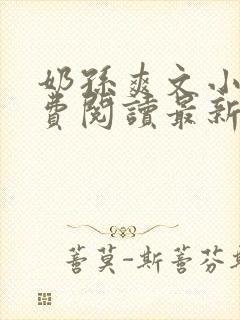 奶孫爽文小
費閱讀最新
善莫-斯善芬斯